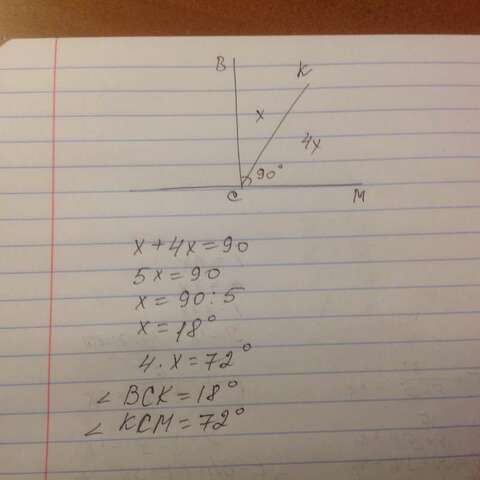 B
K
x
4x
90°
C
M
x+4x=90
5x=90
x=90:5
x=18°
4·x=72°
∠BCK=18°
∠KCM=72°